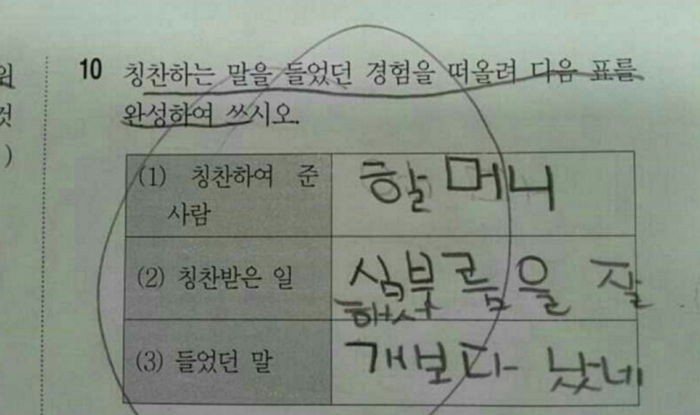 10 칭찬하는 말을 들었던 경험을 떠올려 다음 표를
완성하여 쓰시오.
(1) 칭찬하여 준 사람
할머니
(2) 칭찬받은 일
심부름을 잘
해서
(3) 들었던 말
개보다 낫네